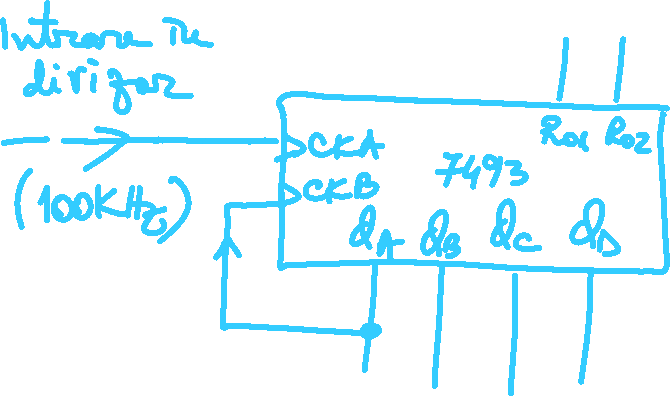 Intrare în
divizor
(100KHz)
CKA
CKB
7493
R01 R02
QA QB QC QD